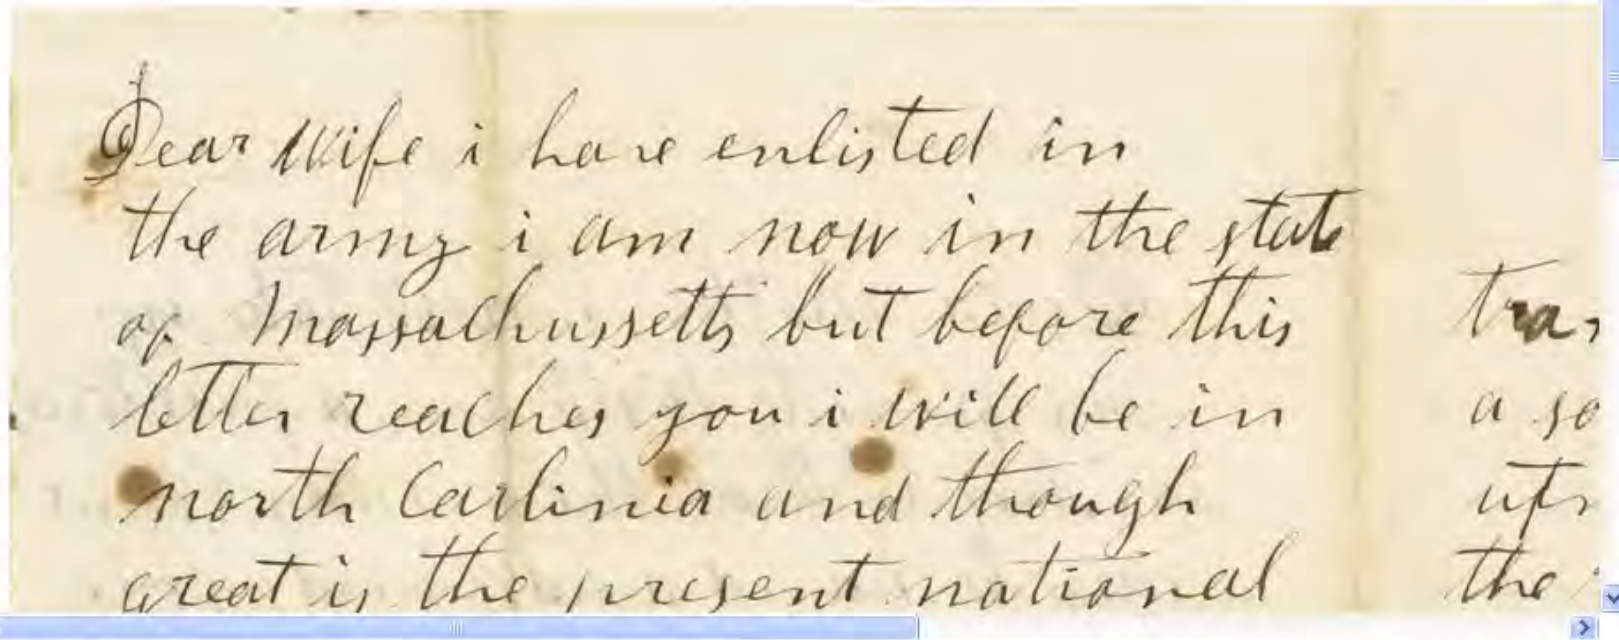 Dear Wife i have enlisted in
the army i am now in the state
of Massachussetts but before this
letter reaches you i will be in
north Carlinia and though
great is the present national
a so
the